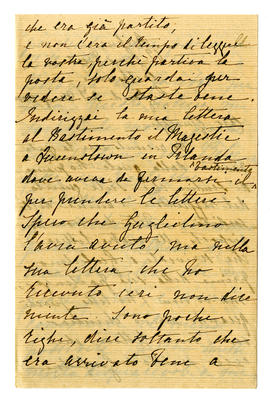 che era già partito,
e non c'era il tempo di legger
la vostra perchè partiva la
posta, solo guardai per
vedere se stavate bene.
Indirizzai la mia lettera
al Bastimento il Majestic
a Queenstown in Irlanda
dove aveva da fermarsi il bastimento
per prendere le lettere.
Spero che Guglielmo
l'avrà avuta, ma nella
sua lettera che ho
ricevuto ieri non dice
niente. Sono poche
righe, dice soltanto che
era arrivato bene a